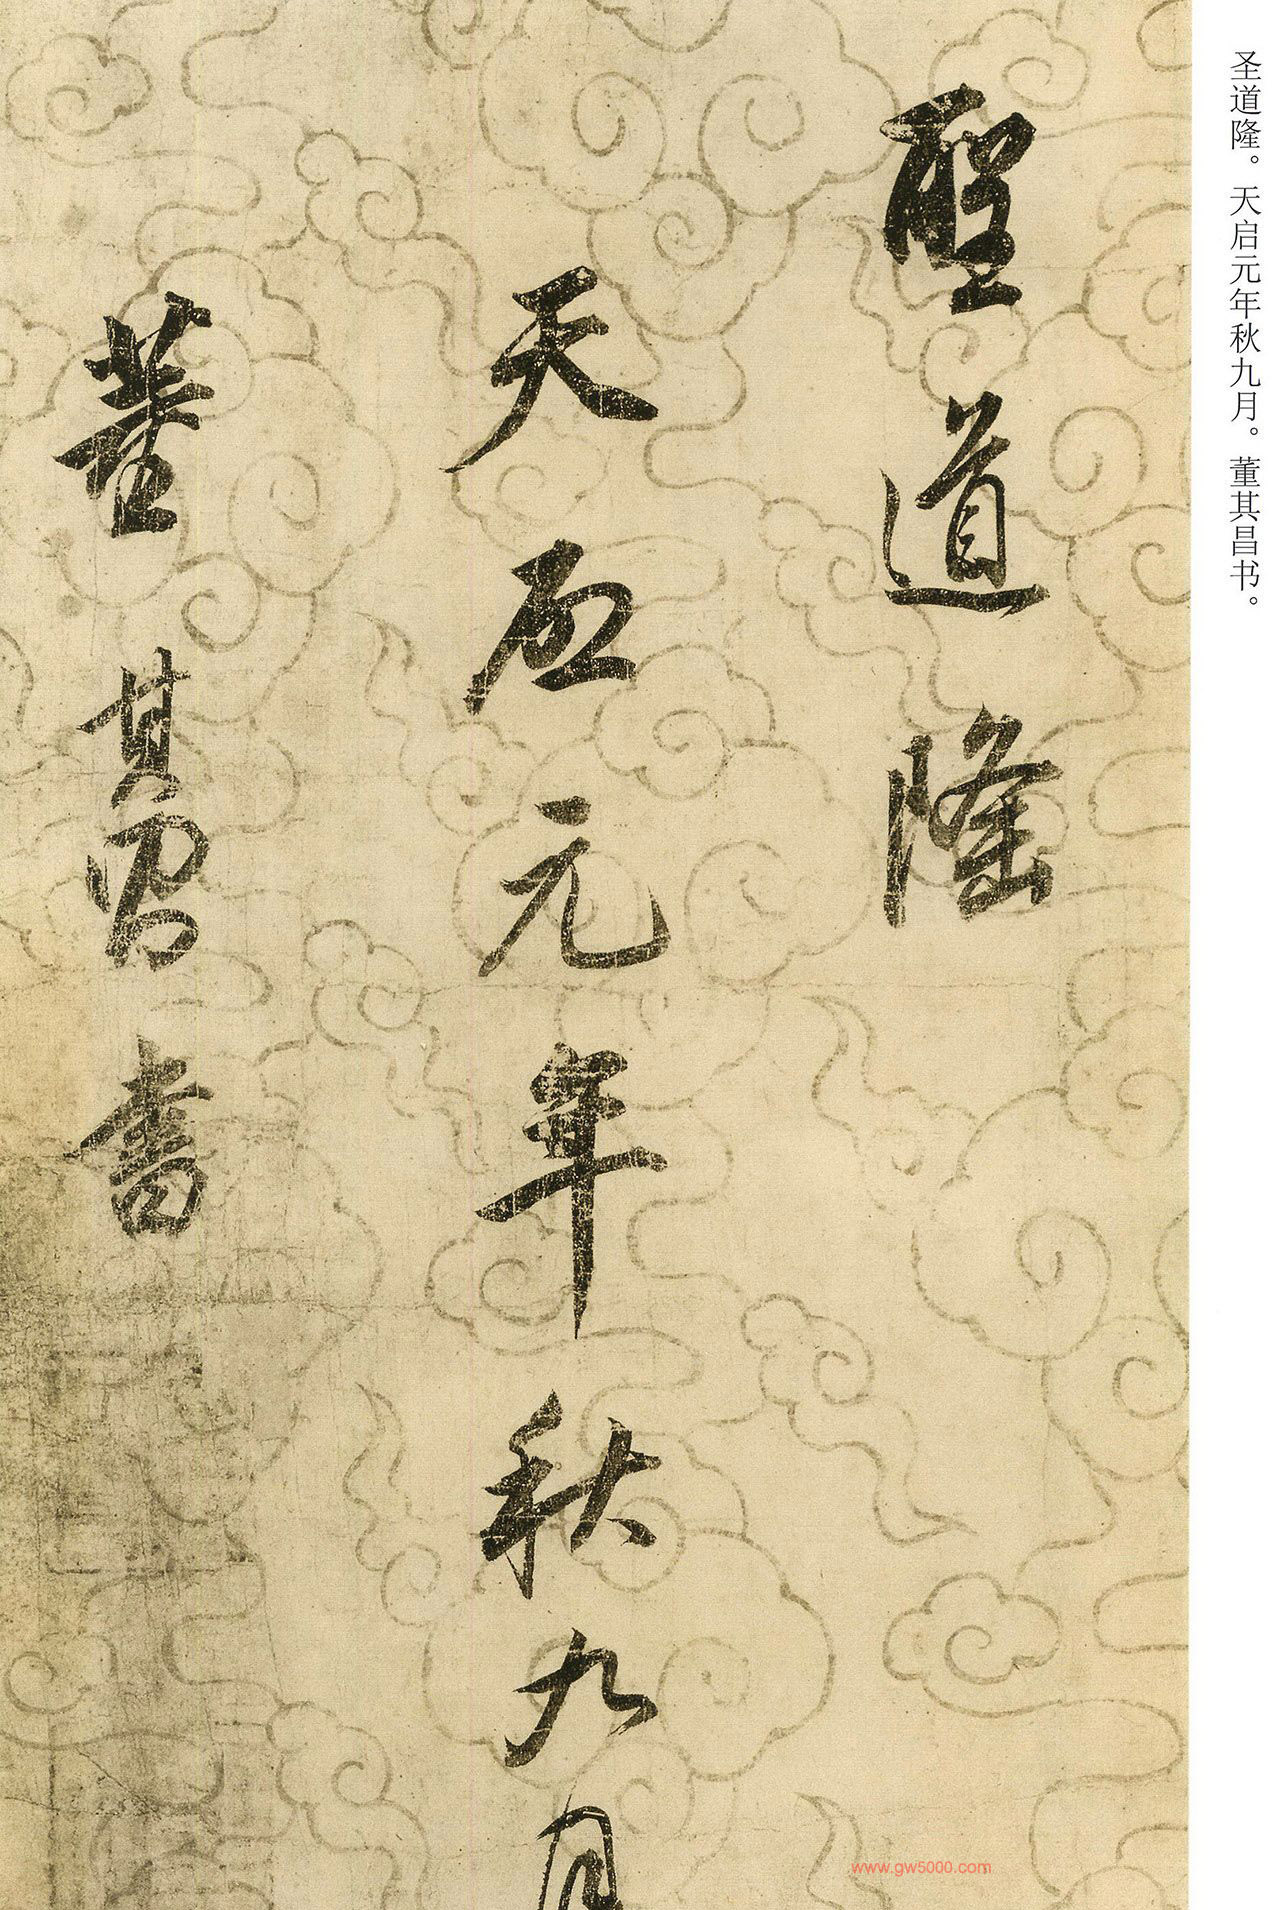 圣道隆。天启元年秋九月。董其昌书。
聖道隆
天啟元年秋九月
董其昌書
www.gw5000.com